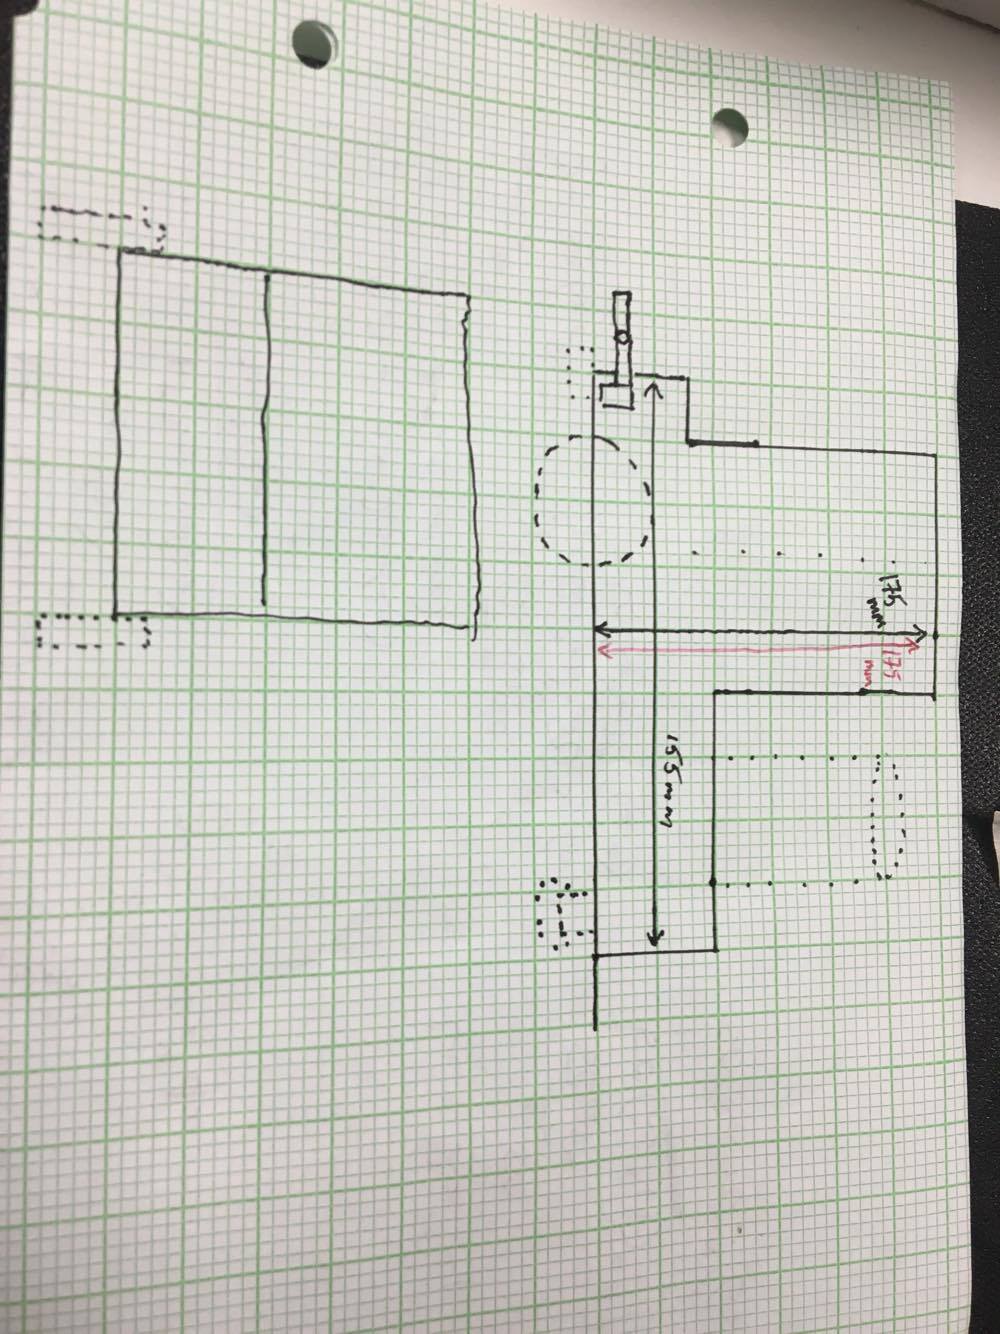 175
mm
175
mm
155mm